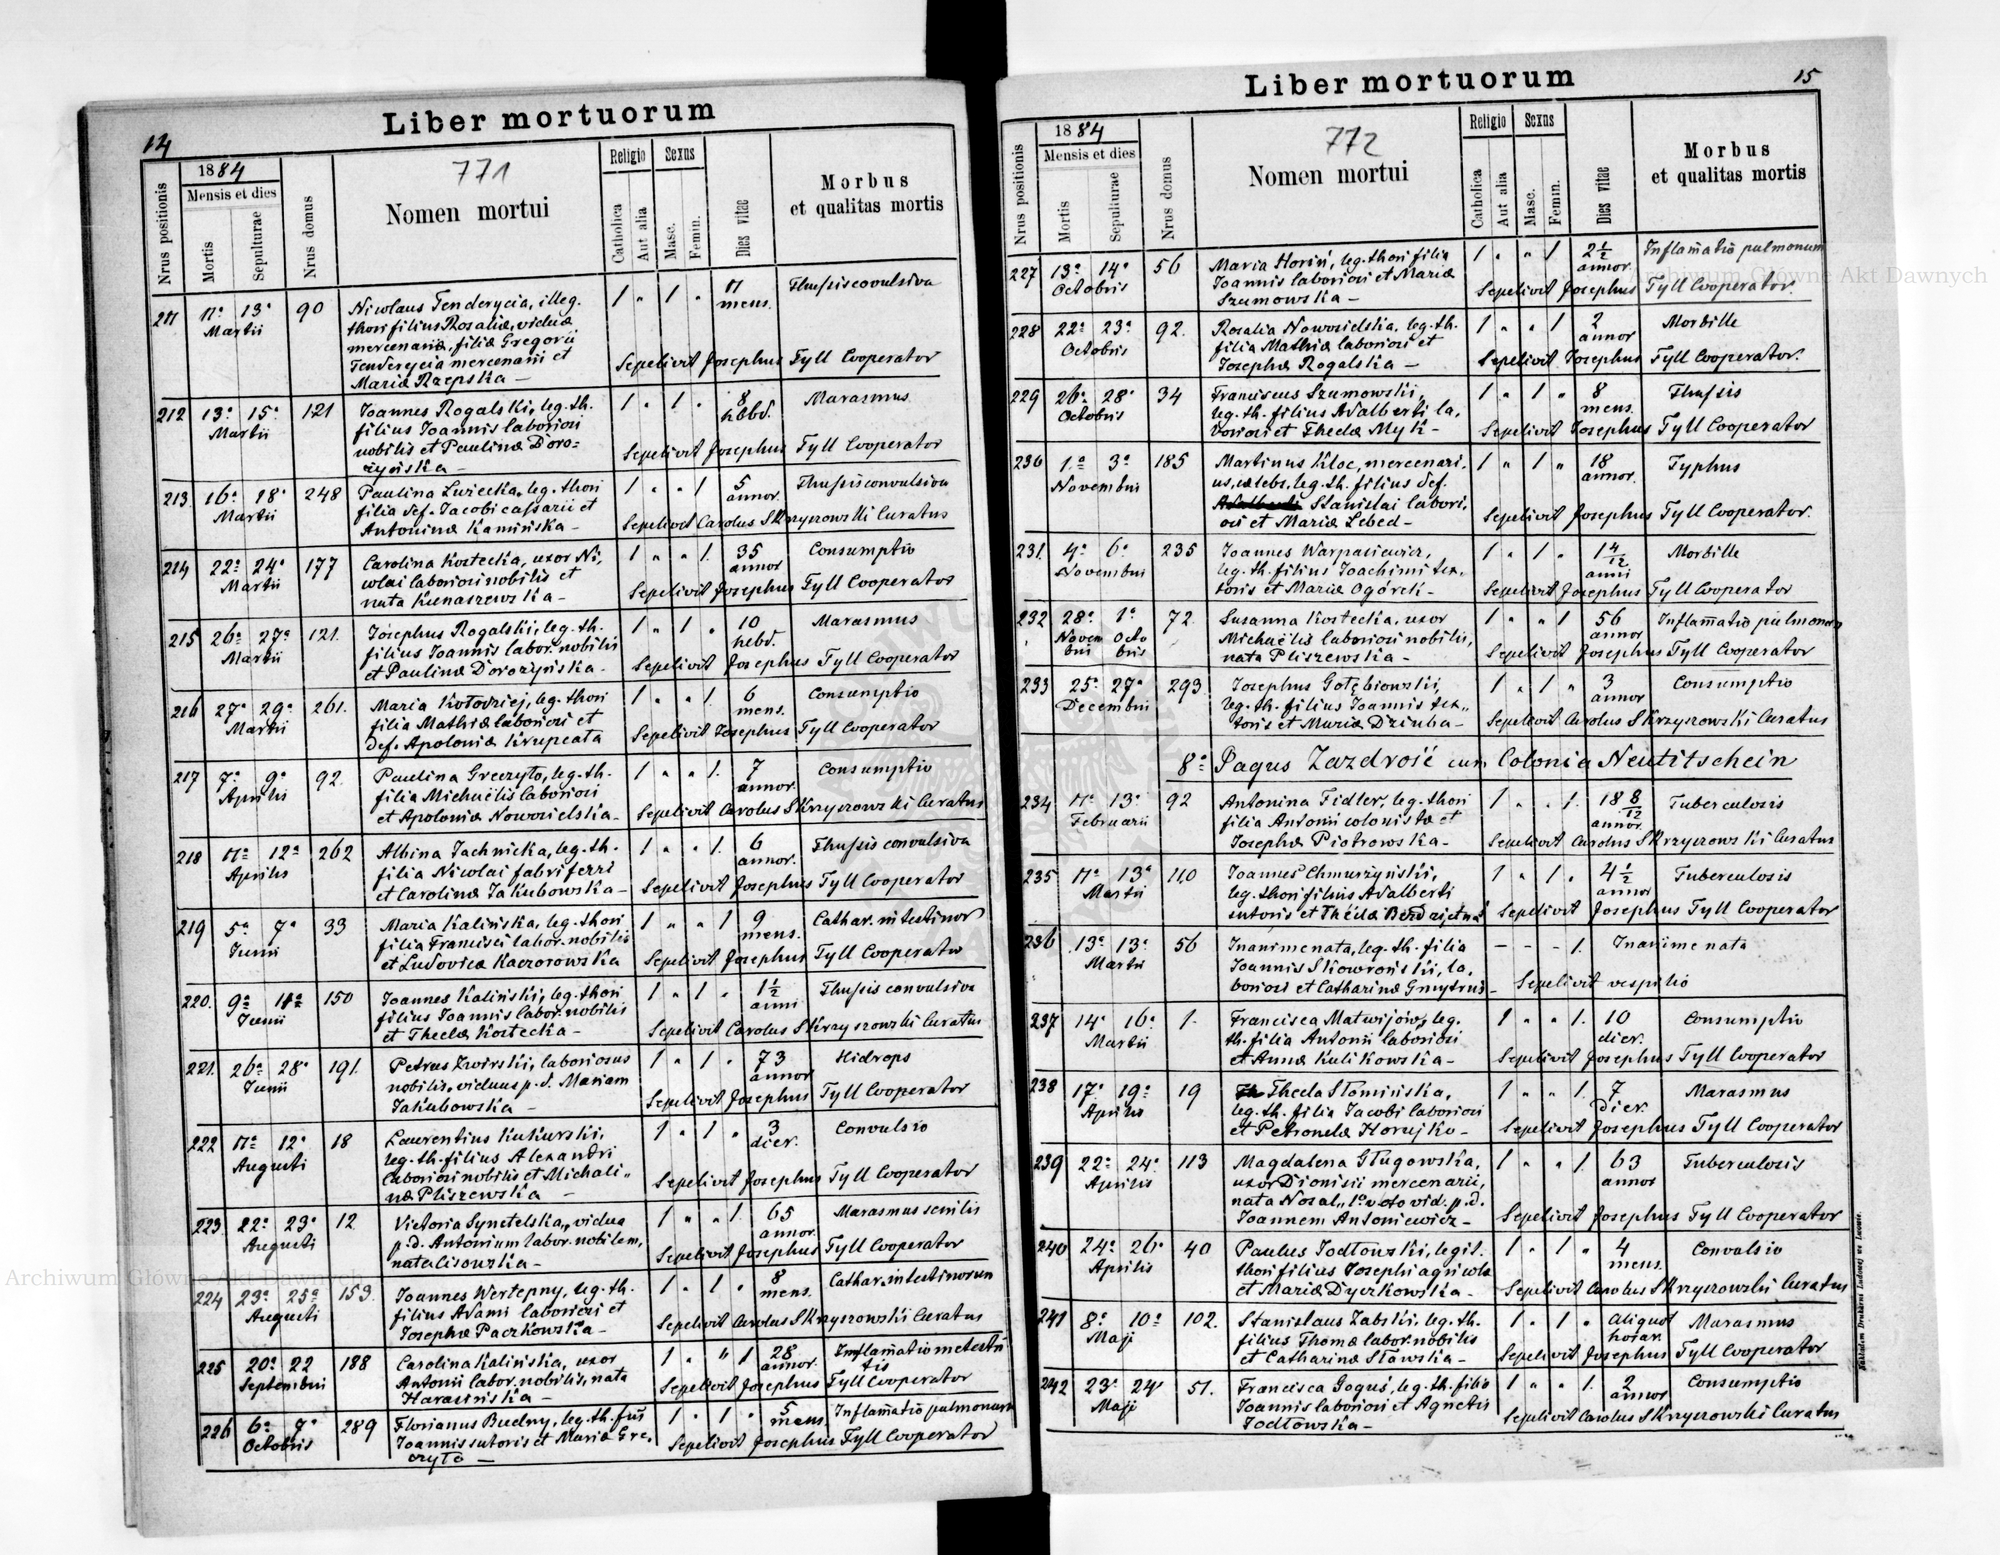 Liber mortuorum
14
1884
Mensis et dies
Nrus positionis
Mortis
Sepulturae
Nrus domus
771
Nomen mortui
Religio
Sexus
Catholica
Aut alia
Masc.
Femin.
Dies vitae
Morbus
et qualitas mortis
211 11a 13a Martii 90 Nicolaus Tenderycia, illeg. 1 " 1 " 11 mens. Thussis covulsiva
thori filius Rosaliæ, viduæ
mercenariæ, filiæ Gregorii
Tenderycia mercenarii et Sepelivit Josephus Tyll Cooperator
Mariæ Rzepska –
212 13a 15a Martii 121 Joannes Rogalski, leg. th. 1 " 1 " 8 hebd. Marasmus
filius Joannis laboriosi
nobilis et Paulinæ Doro= Sepelivit Josephus Tyll Cooperator
żyńska –
213 16a 18a Martii 248 Paulina Luzecka, leg. thori 1 " " 1 5 annor. Thussis convulsiva
filia def. Jacobi cassarii et
Antoninæ Kamińska – Sepelivit Carolus Skrzyszowski Curatus
214 22a 24a Martii 177 Carolina Kostecka, uxor Ni, 1 " " 1. 35 annor Consumptio
colai laboriosi nobilis et
nata Kunaszewska – Sepelivit Josephus Tyll Cooperator
215 26a 27a Martii 121. Josephus Rogalski, leg. th. 1 " 1 " 10 hebd. Marasmus
filius Joannis labor. nobilis
et Paulinæ Dorożyńska – Sepelivit Josephus Tyll Cooperator
216 27a 29a Martii 261. Maria Kołodziej, leg. thori 1 " " 1. 6 mens. Consumptio
filia Mathiæ laboriosi et
def. Apoloniæ Krupcata Sepelivit Josephus Tyll Cooperator
217 7a 9a Aprilis 92. Paulina Greczyło, leg. th. 1 " " 1. 7 annor. Consumptio
filia Michaëlis laboriosi
et Apoloniæ Nowosielska – Sepelivit Carolus Skrzyszowski Curatus
218 11a 12a Aprilis 262 Albina Jachnicka, leg. th. 1 " " 1. 6 annor. Thussis convulsiva
filia Nicolai fabri ferri
et Carolinæ Jakubowska – Sepelivit Josephus Tyll Cooperator
219 5a 7a Junii 33 Maria Kalińska, leg. thori 1 " " 1 9 mens. Cathar. intestinor
filia Francisci labor. nobilis
et Ludovicæ Kaczorowska Sepelivit Josephus Tyll Cooperator
220. 9a 11a Junii 150 Joannes Kaliński, leg. thori 1 " 1 " 1½ anni Thussis convulsiva
filius Joannis labor. nobilis
et Theclæ Kostecka – Sepelivit Carolus Skrzyszowski Curatus
221. 26a 28a Junii 191. Petrus Zwirski, laboriosus 1 " 1 " 73 annor Hidrops
nobilis, viduus p. d. Mariam
Jakubowska – Sepelivit Josephus Tyll Cooperator
222 11a 12a Augusti 18 Laurentius Kukurski, 1 " 1 " 3 dier. Convulsio
leg. th. filius Alexandri
laboriosi nobilis et Michali„ Sepelivit Josephus Tyll Cooperator
næ Pliszewska –
223. 22a 23a Augusti 12 Victoria Synetelska, vidua 1 " " 1. 65 annor. Marasmus senilis
p. d. Antonium labor. nobilem,
nata Lisowska – Sepelivit Josephus Tyll Cooperator
224 23a 25a Augusti 153. Joannes Wertepny, leg. th. 1 " 1 " 8 mens. Cathar. intestinorum
filius Adami laboriosi et
Josephæ Paczkowska – Sepelivit Carolus Skrzyszowski Curatus
225 20a 22 Septembris 188 Carolina Kalińska, uxor 1 " " 1 28 annor.
Antonii labor. nobilis, nata
Harasińska – Sepelivit Josephus Tyll Cooperator
226 6a 7a Octobris 289 Florianus Budny, leg. th. fils 1 " 1 " 5 mens Inflamatio pulmonum
Joannis sutoris et Mariæ Gre, Sepelivit Josephus Tyll Cooperator
czyło –
Liber mortuorum
15
1884
Mensis et dies
Nrus positionis
Mortis
Sepulturae
Nrus domus
772
Nomen mortui
Religio
Sexus
Catholica
Aut alia
Masc.
Femin.
Dies vitae
Morbus
et qualitas mortis
227 13a 14a Octobris 56 Maria Horiń, leg. thori filia 1 " " 1 2½ annor. Inflamatio pulmonum
Joannis laboriosi et Mariæ
Szumowska – Sepelivit Josephus Tyll Cooperator.
228 22a 23a Octobris 92. Rosalia Nowosielska, leg. th. 1 " " 1 2 annor Morbille
filia Mathiæ laboriosi et
Josephæ Rogalska – Sepelivit Josephus Tyll Cooperator.
229 26a 28a Octobris 34 Franciscus Szumowski, 1 " 1 " 8 mens. Thussis
leg. th. filius Adalberti la,
boriosi et Theclæ Myk – Sepelivit Josephus Tyll Cooperator
230 1a 3a Novembris 185 Martinus Kloc, mercenari, 1 " 1 " 18 annor. Typhus
us, cælebs, leg. th. filius def.
Stanislai labori,
osi et Mariæ Lebed – Sepelivit Josephus Tyll Cooperator.
231. 4a 6a Novembris 235 Joannes Warpasiewicz, 1 " 1 " 1 4/12 anni Morbille
leg. th. filius Joachimi tex,
toris et Mariæ Ogórek – Sepelivit Josephus Tyll Cooperator
232 28a 1a Novembris Octobris 72. Susanna Kostecka, uxor 1 " " 1 56 annor Inflamatio pulmonum
Michaëlis laboriosi nobilis,
nata Pliszewska – Sepelivit Josephus Tyll Cooperator
233 25a 27a Decembris 293. Josephus Gołębiowski, 1 " 1 " 3 annor Consumptio
leg. th. filius Joannis tex„
toris et Mariæ Dziuba – Sepelivit Carolus Skrzyszowski Curatus
8o Pagus Zazdrość cum Colonia Neutitschein
234 11a 13a Februarii 92 Antonina Fidler, leg. thori 1 " " 1. 18 8/12 annor. Tuberculosis
filia Antonii colonistæ et
Josephæ Piotrowska – Sepelivit Carolus Skrzyszowski Curatus
235 11a 13a Martii 110 Joannes Chmurzyński, 1 " 1 " 4½ annor Tuberculosis
leg. thori filius Adalberti
sutoris et Theclæ Sepelivit Josephus Tyll Cooperator
236 13a 13a Martii 56 Inanime nata, leg. th. filia – – – 1. Inanime nata
Joannis Skowroński, la,
boriosi et Catharinæ Gmytruś – Sepelivit vespilio
237 14a 16a Martii 1. Francisca Matwijów, leg. 1 " " 1. 10 dier. Consumptio
th. filia Antonii laboriosi
et Annæ Kulikowska – Sepelivit Josephus Tyll Cooperator
238 17a 19a Aprilis 19 Thecla Słomińska, 1 " " 1. 7 dier. Marasmus
leg. th. filia Jacobi laboriosi
et Petronelæ Horajko – Sepelivit Josephus Tyll Cooperator
239 22a 24a Aprilis 113 Magdalena Gługowska, 1 " " 1. 63 annor Tuberculosis
uxor Dionisii mercenarii,
nata Nosal„ 1o voto vid. p. d.
Joannem Antoniewicz – Sepelivit Josephus Tyll Cooperator
240 24a 26a Aprilis 40 Paulus Jodłowski, legit. 1 " 1 " 4 mens. Convulsio
thori filius Josephi agricolæ
et Mariæ Dyczkowska – Sepelivit Carolus Skrzyszowski Curatus
241 8a 10a Maji 102. Stanislaus Zabski, leg. th. 1 " 1 " aliquot horar. Marasmus
filius Thomæ labor. nobilis
et Catharinæ Stawska – Sepelivit Josephus Tyll Cooperator
242 23a 24a Maji 51. Francisca Goguś, leg. th. filia 1 " " 1. 2 annor Consumptio
Joannis laboriosi et Agnetis
Jodłowska – Sepelivit Carolus Skrzyszowski Curatus
Nakładem Drukarni Ludowej we Lwowie.
Archiwum Główne Akt Dawnych
Archiwum Główne Akt Dawnych